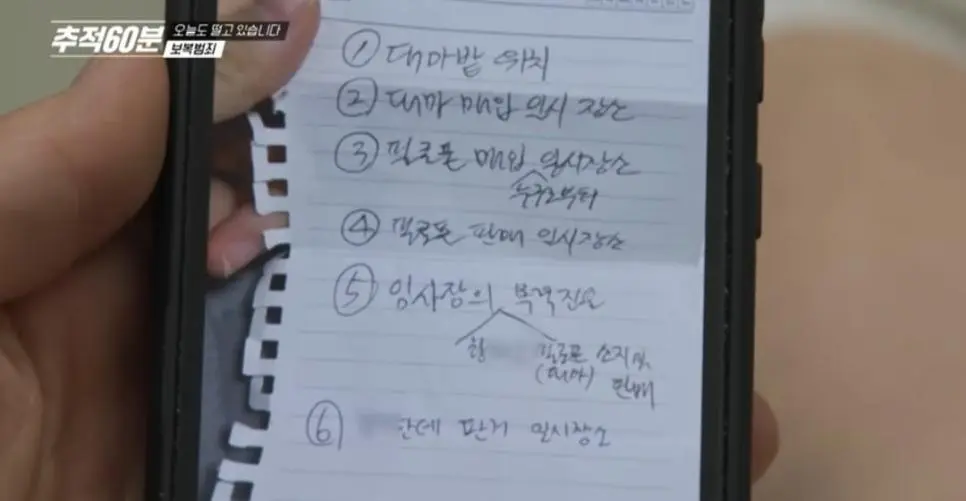 추적60분
오늘도 떨고 있습니다
보복범죄
① 대마밭 위치
② 대마 매입 일시 장소
③ 필로폰 매입 일시장소
누구로부터
④ 필로폰 판매 일시장소
⑤ 임사장의
필로폰 소지 및
(대마) 판매
⑥ 한테 판거 일시장소